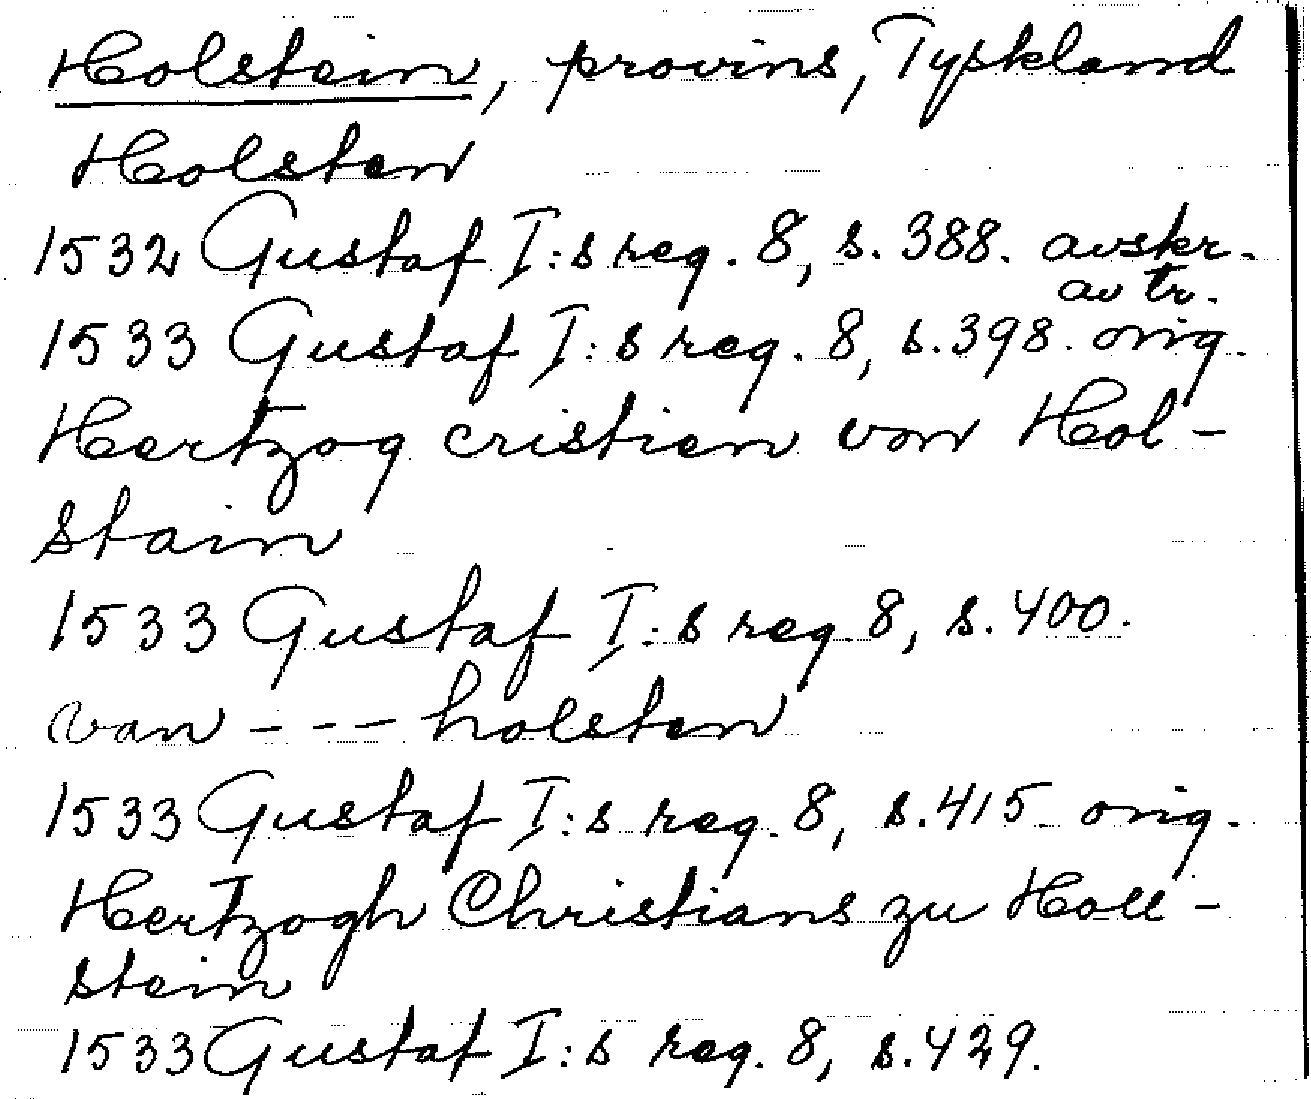 Holstein, provins, Tyskland
Holsten
1532 Gustaf I:s reg. 8, s. 388. avskr.
av tr.
1533 Gustaf I:s reg. 8, s. 398. orig.
Hertzog cristien von Hol-
stain
1533 Gustaf I:s reg. 8, s. 400.
van --- holsten
1533 Gustaf I:s reg. 8, s. 415 orig.
Hertzogh Christians zu Holl-
stein
1533 Gustaf I:s reg. 8, s. 429.